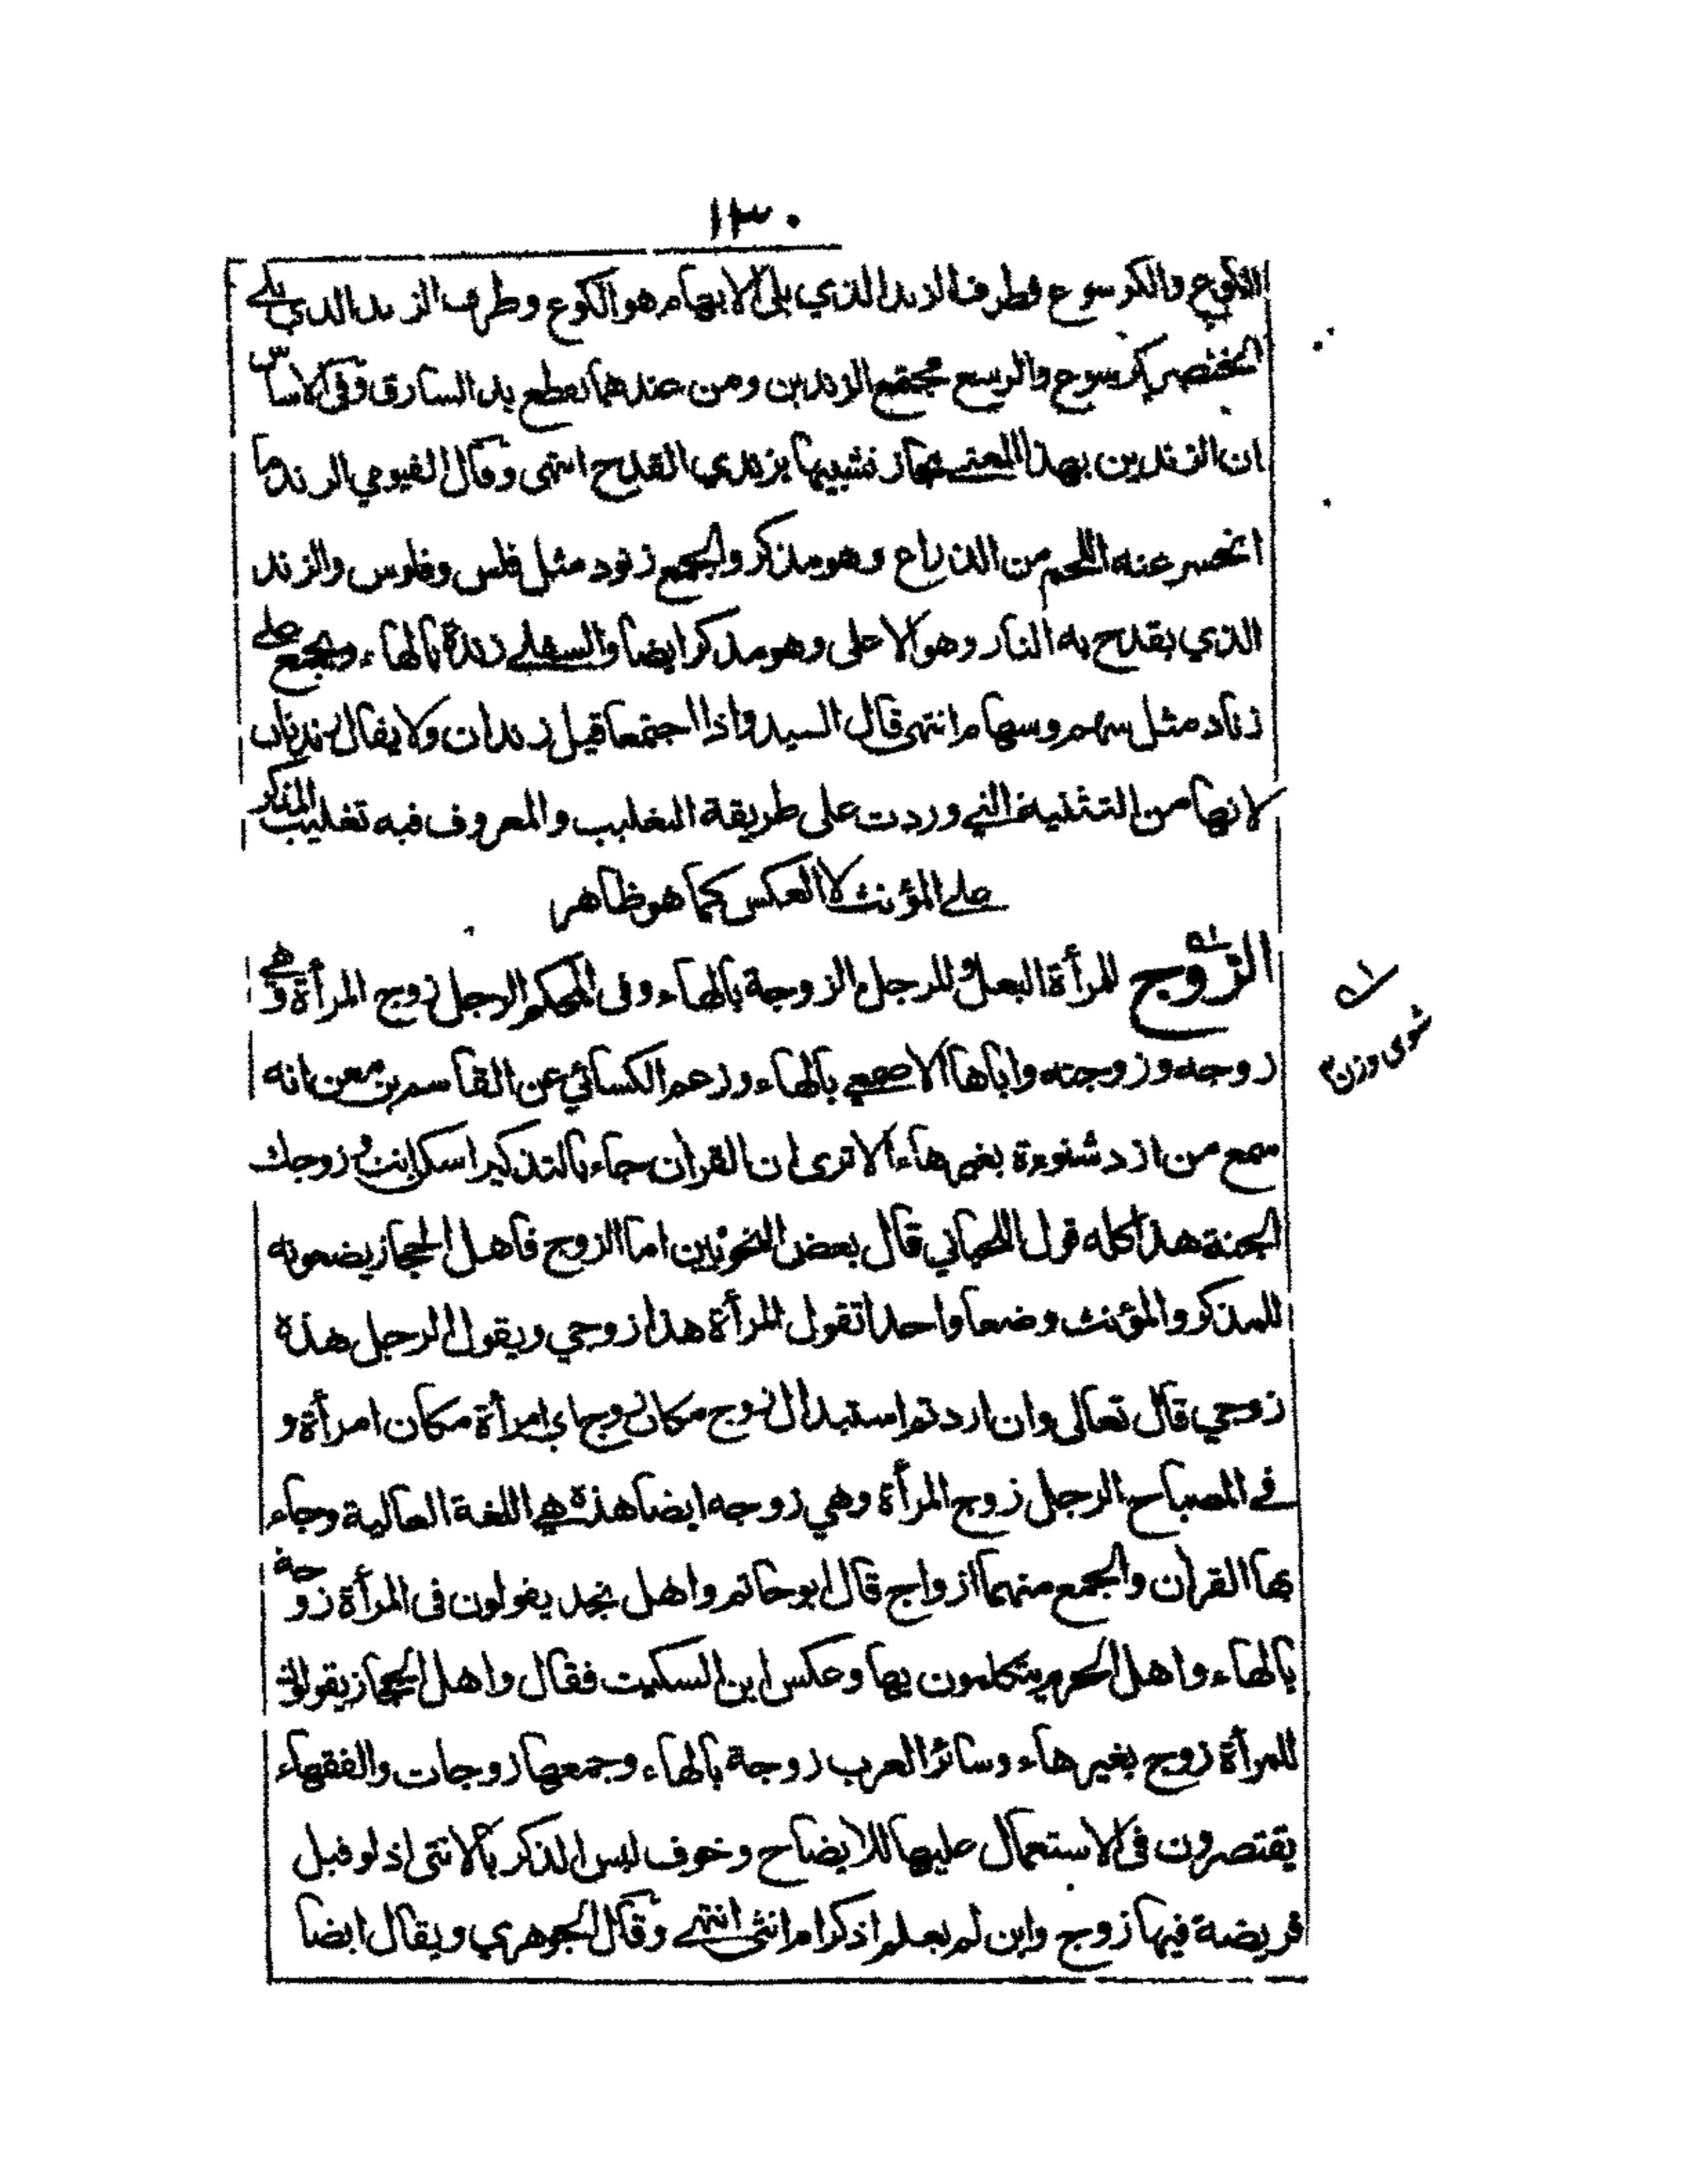 ١٣٠
الكوع والكرسوع فطرف الزند الذي يلي الابهام هو الكوع وطرف الزند الذي يلي
الخنصر كرسوع والرسع مجتمع الزندين ومن عندهما تقطع يد السارق وفى الاساس
ان الزندين بهذا المعنى مجاز تشبيها بزندي القدح انتهى وقال الفيومي الزند ما
انحسر عنه اللحم من الذراع وهو مذكر والجمع زنود مثل فلس وفلوس والزند
الذي يقدح به النار وهو الاعلى وهو مذكر ايضا والسفلى زندة بالهاء ويجمع على
زناد مثل سهم وسهام انتهى قال السيد واذا اجتمعا قيل زندان ولا يقال زندتان
لانها من التثنية التي وردت على طريقة التغليب والمعروف فيه تغليب المذكر
على المؤنث لا العكس كما هو ظاهر
الزوج للمرأة البعل وللرجل الزوجة بالهاء وفى المحكم الرجل زوج المرأة وهي
زوجه وزوجته واباها الاصمعي بالهاء وزعم الكسائي عن القاسم بن معن انه
سمع من ازد شنوءة بغير هاء الا ترى ان القرآن جاء بالتذكير اسكن انت وزوجك
الجنة هذا كله قول اللحياني قال بعض النحويين اما الزوج فاهل الحجاز يضعونه
للمذكر والمؤنث وضعا واحدا تقول المرأة هذا زوجي ويقول الرجل هذة
زوجي قال تعالى وان اردتم استبدال زوج مكان زوج اي امرأة مكان امرأة و
في المصباح الرجل زوج المرأة وهي زوجه ايضا هذة هي اللغة العالية وجاء
بها القرآن والجمع منهما ازواج قال ابو حاتم واهل نجد يقولون فى المرأة زوجة
بالهاء واهل الحرم يتكلمون بها وعكس ابن السكيت فقال واهل الحجاز يقولون
للمرأة زوج بغير هاء وسائر العرب زوجة بالهاء وجمعها زوجات والفقهاء
يقتصرون فى الاستعمال عليها للايضاح وخوف لبس الذكر بالانثى اذ لو قيل
فريضة فيها زوج وابن لم يعلم اذكر ام انثى انتهى وقال الجوهري ويقال ايضا
شوى وزن